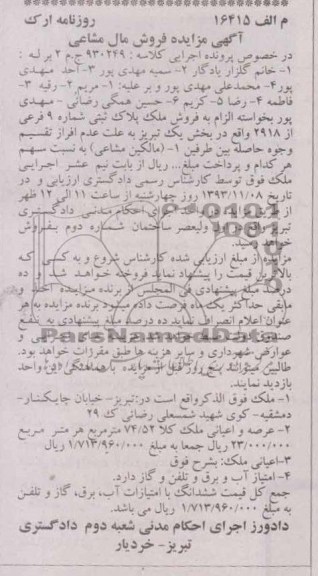 م الف ۱۶۴۱۵ روزنامه ارک
آگهی مزایده فروش مال مشاعی
در خصوص پرونده اجرایی کلاسه : ۹۳۰۲۴۹ ج.م ۲ بر له :
۱- خانم گلزار یادگار ۲- سمیه مهدی پور ۳- احد مهدی
پور ۴- محمدعلی مهدی پور و بر علیه: ۱- مریم ۲- رقیه ۳-
فاطمه ۴- رضا ۵- کریم ۶- حسین همگی رضائی - مهدی
پور بخواسته الزام به فروش ملک پلاک ثبتی شماره ۹ فرعی
از ۲۹۱۸ واقع در بخش یک تبریز به علت عدم افراز تقسیم
وجوه حاصله بین طرفین ۱- (مالکین مشاعی) به نسبت سهم
هر کدام و پرداخت مبلغ... ریال از بابت نیم عشر اجرایی
ملک فوق توسط کارشناس رسمی دادگستری ارزیابی و در
تاریخ ۱۳۹۳/۱۱/۰۸ روز چهارشنبه از ساعت ۱۱ الی ۱۲ ظهر
از طریق مزایده در اجرای احکام مدنی دادگستری
تبریز واقع در ولیعصر ساختمان شماره دوم بفروش
خواهد رسید.
مزایده از مبلغ ارزیابی شده کارشناس شروع و به کسی که
بالاترین قیمت را پیشنهاد نماید فروخته خواهد شد و ده
درصد مبلغ پیشنهادی فی المجلس از برنده مزایده اخذ و
مابقی حداکثر یک ماه فرصت داده میشود برنده مزایده به هر
عنوان اعلام انصراف نماید ده درصد مبلغ پیشنهادی به نفع
صندوق دولت
عوارض شهرداری و سایر هزینه ها طبق مقررات خواهد بود.
طالبین میتوانند پنج روز قبل از مزایده با هماهنگی این واحد
بازدید نمایند.
۱- ملک فوق الذکر واقع است در:تبریز- خیابان چایکنار-
دمشقیه- کوی شهید شمسعلی رضائی ک ۲۹
۲- عرصه و اعیانی ملک کلا ۷۴/۵۲ مترمربع هر متر مربع
۲۳/۰۰۰/۰۰۰ ریال جمعا به مبلغ ۱/۷۱۳/۹۶۰/۰۰۰ ریال
۳-اعیانی ملک: بشرح فوق
۴- امتیاز آب و برق و تلفن و گاز دارد.
جمع کل قیمت ششدانگ با امتیازات آب، برق، گاز و تلفن
به مبلغ ۱/۷۱۳/۹۶۰/۰۰۰ ریال می باشد.
دادورز اجرای احکام مدنی شعبه دوم دادگستری
تبریز- خردیار
ParsNamadData